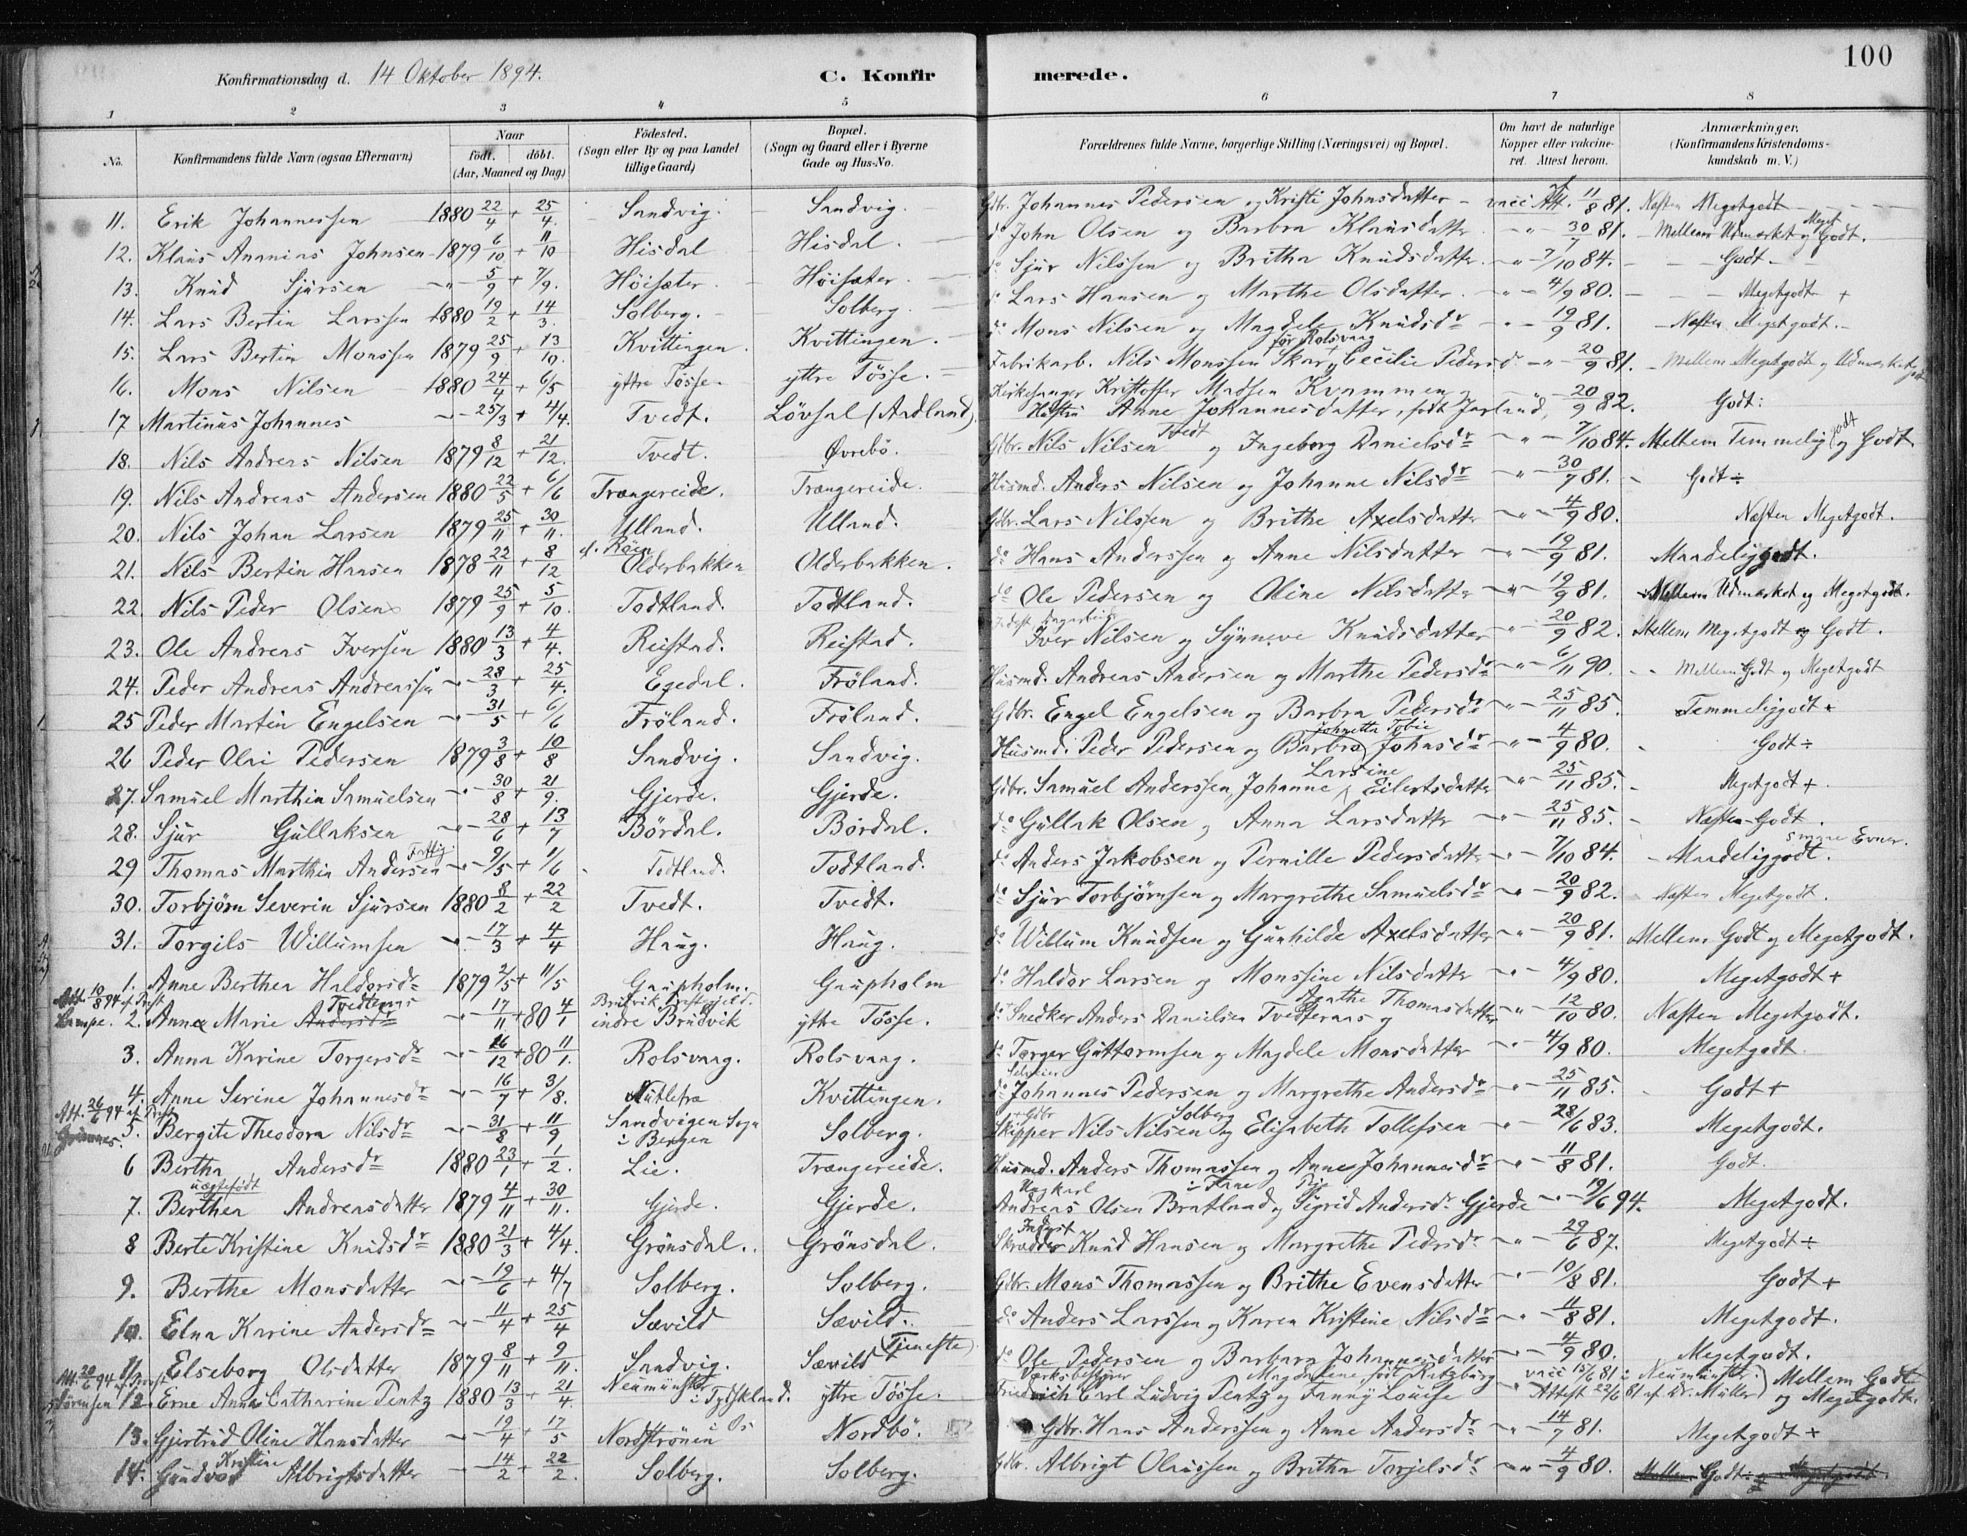 100
Konfirmationsdag d. 14 Oktober 1894. C. Konfirmerede.
1 2 3 4 5 6 7 8
No. Konfirmandens fulde Navn (ogsaa Efternavn) Naar født. døbt. (Aar, Maaned og Dag) Fødested. (Sogn eller By og paa Landet tillige Gaard) Bopæl. (Sogn og Gaard eller i Byerne Gade og Hus-No. Forældrenes fulde Navne, borgerlige Stilling (Næringsvei) og Bopæl. Om havt de naturlige Kopper eller vakcineret. Attest herom. Anmærkninger. (Konfirmandens Kristendomskundskab m. V.)
11. Erik Johannessen 1880 22/4 + 25/4. Sandvig. Sandvig. Gdbr. Johannes Pedersen og Kristi Johnsdatter - vacc Att. 11/8 81. Næsten Megetgodt
12. Klaus Ananias Johnsen 1879 6/10 + 11/10 Hisdal Hisdal. do John Olsen og Barbra Klausdatter 30/7 81. Mellem Udmærket og Meget Godt.
13. Knud Sjursen 5/9 + 7/9. Höisæter. Höisæter. do Sjur Nilssen og Britha Knudsdatter 7/10 84. Godt
14. Lars Bertin Larssen 1880 19/2 + 14/3. Solberg. Solberg. do Lars Hansen og Marthe Olsdatter 4/9 80. Megetgodt +
15. Lars Bertin Monssen 1879 25/9 + 13/10. Kvittingen. Kvittingen. do Mons Nilsen og Magdele Knudsdr 19/9 81. Næsten Megetgodt.
16. Mons Nilsen 1880 24/4 + 6/5 yttre Tösse. yttre Tösse. Fabrikarb. Nils Monssen Skar, før Rolsvaag Cecilie Pedersd. 20/9 81. Mellem Megetgodt og Udmærket
17 Martinus Johannes 25/3 + 4/4. Tvedt. Lövsal (Aadland). Kirkesanger Kristoffer Madsen Kvammen og Hustru Anne Johannesdatter, født Jarland, 20/9 82. Godt:
18. Nils Andreas Nilsen 1879 8/12 + 21/12. Tvedt. Övrebö. Gdbr. Nils Nilsen Tvedt og Ingeborg Danielsdr 7/10 84. Mellem Temmelig godt og Godt
19. Nils Andreas Andersen 1880 22/5 + 6/6 Trængereide. Trængereide. Husmd. Anders Nilsen og Johanne Nilsdr 30/7 81. Godt ÷
20. Nils Johan Larsen 1879 25/11 + 30/11. Ulland. Ulland. Gdbr. Lars Nilssen og Brithe Axelsdatter 4/9 80. Næsten Megetgodt.
21. Nils Bertin Hansen 1878 22/11 + 8/12 Olderbakken Olderbakken. do Hans Anderssen og Anne Nilsdatter 19/9 81. Maadeliggodt.
22. Nils Peder Olsen 1879 25/9 + 5/10. Todtland. Todtland. do Ole Pedersen og Oline Nilsdatter 19/9 81. Mellem Udmærket og Megetgodt.
23. Ole Andreas Iversen 1880 13/3 + 4/4. Reistad. Reistad. Iver Nilsen og Synneve Knudsdatter 20/9 82. Mellem Megetgodt og Godt.
24. Peder Andreas Andreassen 28/3 + 25/4. Egedal. Fröland. Husmd. Andreas Andersen og Marthe Pedersdr 6/11 90. Mellem Godt og Megetgodt
25 Peder Martin Engelsen 31/5 + 6/6 Fröland. Fröland. Gdbr. Engel Engelsen og Barbra Pedersdr 25/11 85. Temmeliggodt ÷
26 Peder Olai Pedersen 1879 3/8 + 10/8 Sandvig. Sandvig. Husmd. Peder Pedersen og Barbra Johnetta Tobie Johnsdr 4/9 80. Godt ÷
27. Samuel Marthin Samuelsen 30/8 + 21/9. Gjerde. Gjerde. Gdbr. Samuel Anderssen, Johanne Larsine Eilertsdatter 25/11 85. Megetgodt +
28. Sjur Gullaksen 28/6 + 13/7 Bördal. Bördal. do Gullak Olsen og Anna Larsdatter 25/11 85. Næsten Godt.
29 Thomas Marthin Andersen Fattig 9/5 + 1/6 Todtland. Todtland. do Anders Jakobsen og Pernille Pedersdatter 7/10 84. Maadeliggodt. smaae Evner.
30. Torbjørn Severin Sjursen 1880 8/2 + 22/2 Tvedt. Tvedt. do Sjur Torbjørnsen og Margrethe Samuelsdr 20/9 82. Næsten Megetgodt.
31. Torgils Willumsen 17/3 + 4/4 Haug. Haug. do Willum Knudsen og Gunhilde Axelsdatter 20/9 81. Mellem Godt og Megetgodt.
1. Anne Berthea Haldorsdr 1879 2/5 + 11/5 Gaupholm. Gaupholm do Haldor Larsen og Monssine Nilsdatter 4/9 80. Megetgodt +
Att. 10/8 94 af Prest Lampe. 2. Anna Marie Andersdr Tvedteraas 17/11 + 80 4/1 Bruvik Præstegjeld. indre Bruvik yttre Tösse. do Snedker Anders Danielsen Tvedteraas og Agathe Thomasdatter 12/10 80. Næsten Megetgodt.
3. Anna Karine Torgersdr 16/12 + 80 11/1. Rolsvaag. Rolsvaag. do Torger Guttormsen og Magdele Monsdatter 4/9 80. Megetgodt.
4. Anne Serine Johannesdr 16/7 + 3/8. Kvittingen. do Selveier Johannes Pedersen og Margrethe Andersdr 25/11 85. Godt +
Att. 26/6 94 af Prest 5. Bergite Theodora Nilsdr 31/8 + 11/9 Sandvigen Sogn i Bergen Solberg. + Gdbr Skipper Nils Nilsen Solberg og Elisabeth Tollefsen 28/6 83. Megetgodt.
6 Bertha Andersdr 1880 23/1 + 1/2. Lie. Trængereide. Husmd. Anders Thomassen og Anne Johannesdr 11/8 81. Godt.
7. Berthea uægtefødt Andreasdatter 1879 4/11 + 30/11. Gjerde. Gjerde. Ungkarl Andreas Olsen Bratland i Fane og Pige Sigrid Andersdr Gjerde 19/6 94. Megetgodt.
8 Berte Kristine Knudsdr 1880 21/3 + 4/4. Grönsdal. Grönsdal. Inderst Skrædder Knud Hansen og Margrethe Pedersdr 29/6 87. Megetgodt ÷
9. Berthe Monsdatter 19/6 + 4/7 Solberg. Solberg. Gdbr. Mons Thomassen og Brithe Evensdatter 10/8 81. Godt +
10. Elna Karine Andersdr 11/4 + 25/4 Sævild Sævild. do Anders Larssen og Karen Kristine Nilsdr 11/8 81. Megetgodt.
11. Elseborg Olsdatter 1879 8/11 + 9/11. Sandvig. Sævild (Tjeneste). do Ole Pedersen og Barbara Johannesdatter 4/9 80. Megetgodt.
Att. 20/6 94 af Prest Sørensen 12. Erne Anna Catharine Pentz 1880 13/3 + 21/4. Neumünster i Tydskland. yttre Tösse. Værksbestyrer Friedrich Carl Ludvig Pentz og Fanny Louise Magdalene født Ratzburg vacc 15/6 81 i Neumünster. Attest 22/6 81 af Dr. Müller) Mellem Godt og Megetgodt.
13. Gjertrud Oline Hansdatter 19/4 + 17/5 Nordströnen i Os Nordbö. Gdbr. Hans Anderssen og Anne Andersdr 14/7 81. Megetgodt +
14. Gundvor Kristine Albrigtsdatter 14/2 + 22/2. Solberg. Solberg. Gdbr. Albrigt Olaussen og Britha Torjelsdr 4/9 80. Mellem Godt ÷ og Megetgodt.